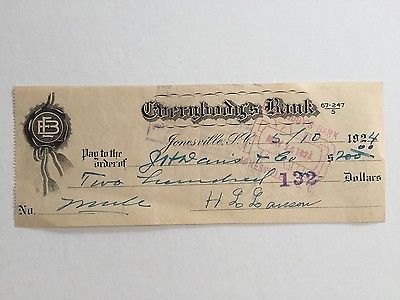 EB
Everybody's Bank
67-247
5
Jonesville, S.C. 5/10 1924
Pay to the order of J H Davis & Co $200.00
Two hundred Dollars
132
No. Mule H L Lawson